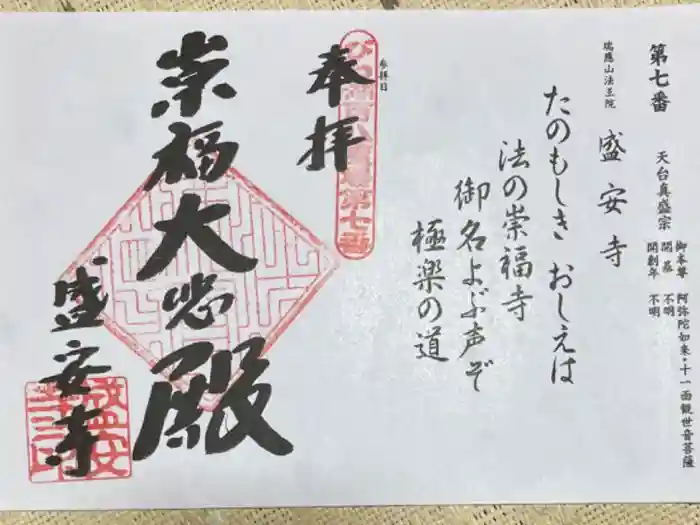 第七番
天台真盛宗
御本尊 阿弥陀如来・十一面観世音菩薩
開基 不明
開創年 不明
瑞應山法王院
盛安寺
たのもしき おしえは
法の崇福寺
御名よぶ声ぞ
極楽の道
参拝日
奉拝
第七番
崇福大悲殿
盛安寺